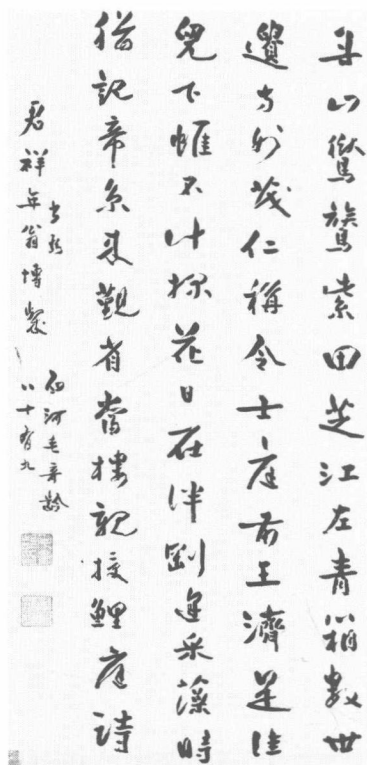 弁山鸑鷟紫田芝江左青箱數世
遺方茂仁稱令士庭前王濟是佳
兒下帷不計探花日在泮剛逢采藻時
猶記帝京來觀省當樓親授鯉庭詩
書
君祥年翁博粲
西河毛奇齡
八十有九